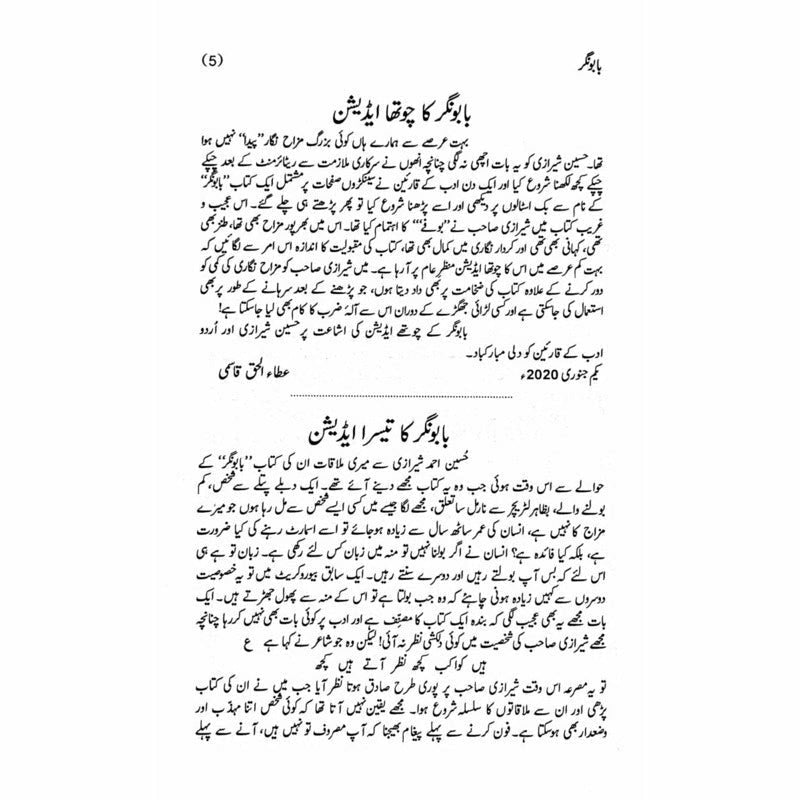 بابونگر
(5)
بابونگر کا چوتھا ایڈیشن
بہت عرصے سے ہمارے ہاں کوئی بزرگ مزاح نگار ”پیدا“ نہیں ہوا
تھا۔ حسین شیرازی کو یہ بات اچھی نہ لگی چنانچہ انھوں نے سرکاری ملازمت سے ریٹائرمنٹ کے بعد چپکے
چپکے کچھ لکھنا شروع کیا اور ایک دن ادب کے قارئین نے سینکڑوں صفحات پر مشتمل ایک کتاب ”بابونگر“
کے نام سے بک اسٹالوں پر دیکھی اور اسے پڑھنا شروع کیا تو پھر پڑھتے ہی چلے گئے۔ اس عجیب و
غریب کتاب میں شیرازی صاحب نے ”بوفے“ کا اہتمام کیا تھا۔ اس میں بھرپور مزاح بھی تھا، طنز بھی
تھی، کہانی بھی تھی اور کردار نگاری میں کمال بھی تھا، کتاب کی مقبولیت کا اندازہ اس امر سے لگائیں کہ
بہت کم عرصے میں اس کا چوتھا ایڈیشن منظرِ عام پر آ رہا ہے۔ میں شیرازی صاحب کو مزاح نگاری کی کمی کو
دور کرنے کے علاوہ کتاب کی ضخامت پر بھی داد دیتا ہوں، جو پڑھنے کے بعد سرہانے کے طور پر بھی
استعمال کی جاسکتی ہے اور کسی لڑائی جھگڑے کے دوران اس سے آلۂ ضرب کا کام بھی لیا جاسکتا ہے!
بابونگر کے چوتھے ایڈیشن کی اشاعت پر حسین شیرازی اور اُردو
ادب کے قارئین کو دلی مبارکباد۔
یکم جنوری 2020ء
عطاء الحق قاسمی
بابونگر کا تیسرا ایڈیشن
حُسین احمد شیرازی سے میری ملاقات ان کی کتاب ”بابونگر“ کے
حوالے سے اس وقت ہوئی جب وہ یہ کتاب مجھے دینے آئے تھے۔ ایک دبلے پتلے سے شخص، کم
بولنے والے، بظاہر لٹریچر سے نارمل سا تعلق، مجھے لگا جیسے میں کسی ایسے شخص سے مل رہا ہوں جو میرے
مزاج کا نہیں ہے، انسان کی عمر ساٹھ سال سے زیادہ ہو جائے تو اسے اسمارٹ رہنے کی کیا ضرورت
ہے، بلکہ کیا فائدہ ہے؟ انسان نے اگر بولنا نہیں تو منہ میں زبان کس لئے رکھی ہے۔ زبان تو ہے ہی
اس لئے کہ بس آپ بولتے رہیں اور دوسرے سنتے رہیں۔ ایک سابق بیوروکریٹ میں تو یہ خصوصیت
دوسروں سے کہیں زیادہ ہونی چاہئے کہ وہ جب بولتا ہے تو اس کے منہ سے پھول جھڑتے ہیں۔ ایک
بات مجھے یہ بھی عجیب لگی کہ بندہ ایک کتاب کا مصنِف ہے اور ادب پر کوئی بات بھی نہیں کر رہا چنانچہ
مجھے شیرازی صاحب کی شخصیت میں کوئی دلکشی نظر نہ آئی! لیکن وہ جو شاعر نے کہا ہے ع
ہیں کواکب کچھ نظر آتے ہیں کچھ
تو یہ مصرعہ اس وقت شیرازی صاحب پر پوری طرح صادق ہوتا نظر آیا جب میں نے ان کی کتاب
پڑھی اور ان سے ملاقاتوں کا سلسلہ شروع ہوا۔ مجھے یقین نہیں آتا تھا کہ کوئی شخص اتنا مہذب اور
وضعدار بھی ہوسکتا ہے۔ فون کرنے سے پہلے پیغام بھیجنا کہ آپ مصروف تو نہیں ہیں، آنے سے پہلے